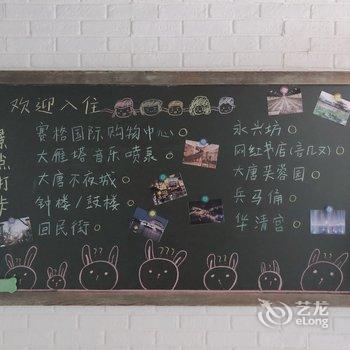 欢迎入住
景点打卡
赛格国际购物中心
大雁塔音乐喷泉
大唐不夜城
钟楼/鼓楼
回民街
永兴坊
网红书店(言几又)
大唐芙蓉园
兵马俑
华清宫
???
???
???
???
艺龙
eLong